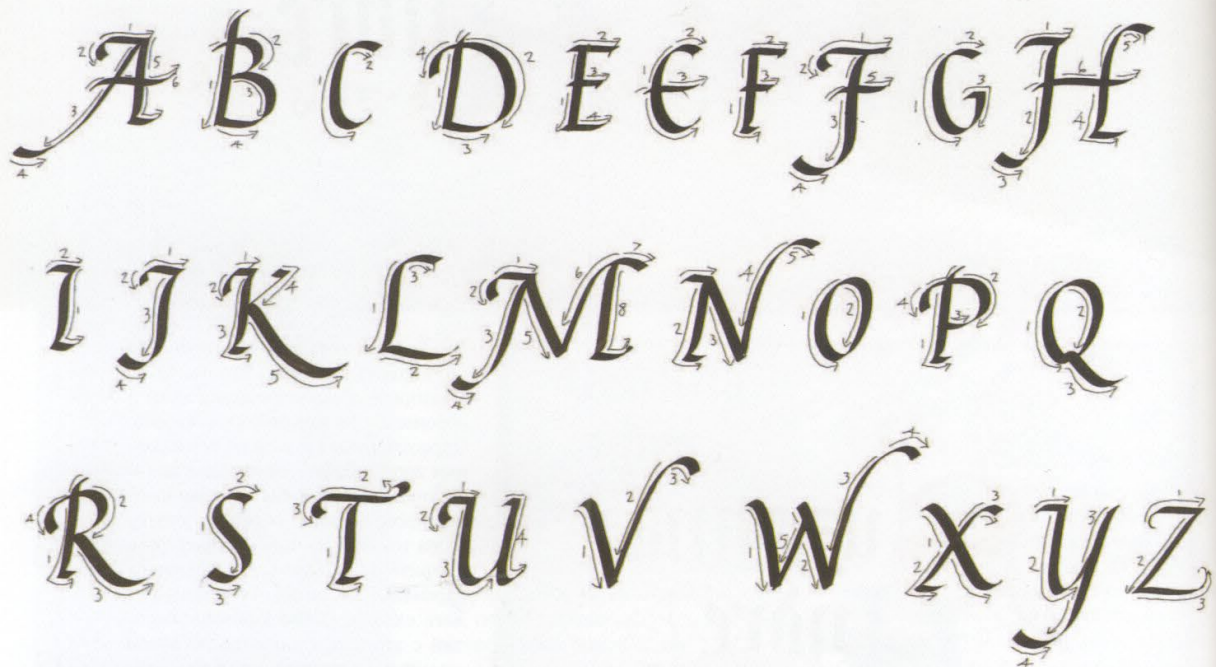 A B C D E E F F G H
I J K L M N O P Q
R S T U V W X Y Z